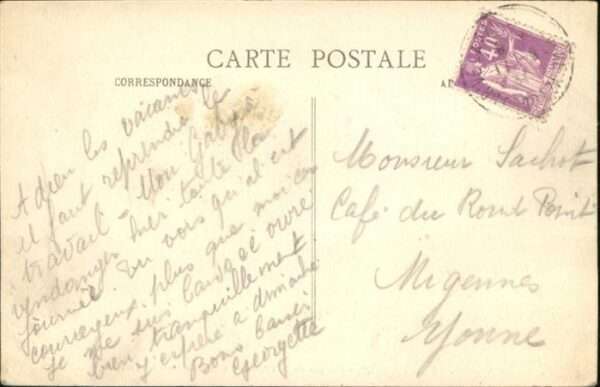 CARTE POSTALE
CORRESPONDANCE
POSTES
40c
Adieu les vacances
il faut reprendre le
travail. Mon Gaby a
vendangé hier toute la
journée. Tu vois qu'il est
courageux plus que moi car
je me suis
bien tranquillement
J'espère a dimanche
Bons baisers
Georgette
Monsieur Sachot
Café du Rond Point
Migennes
Yonne